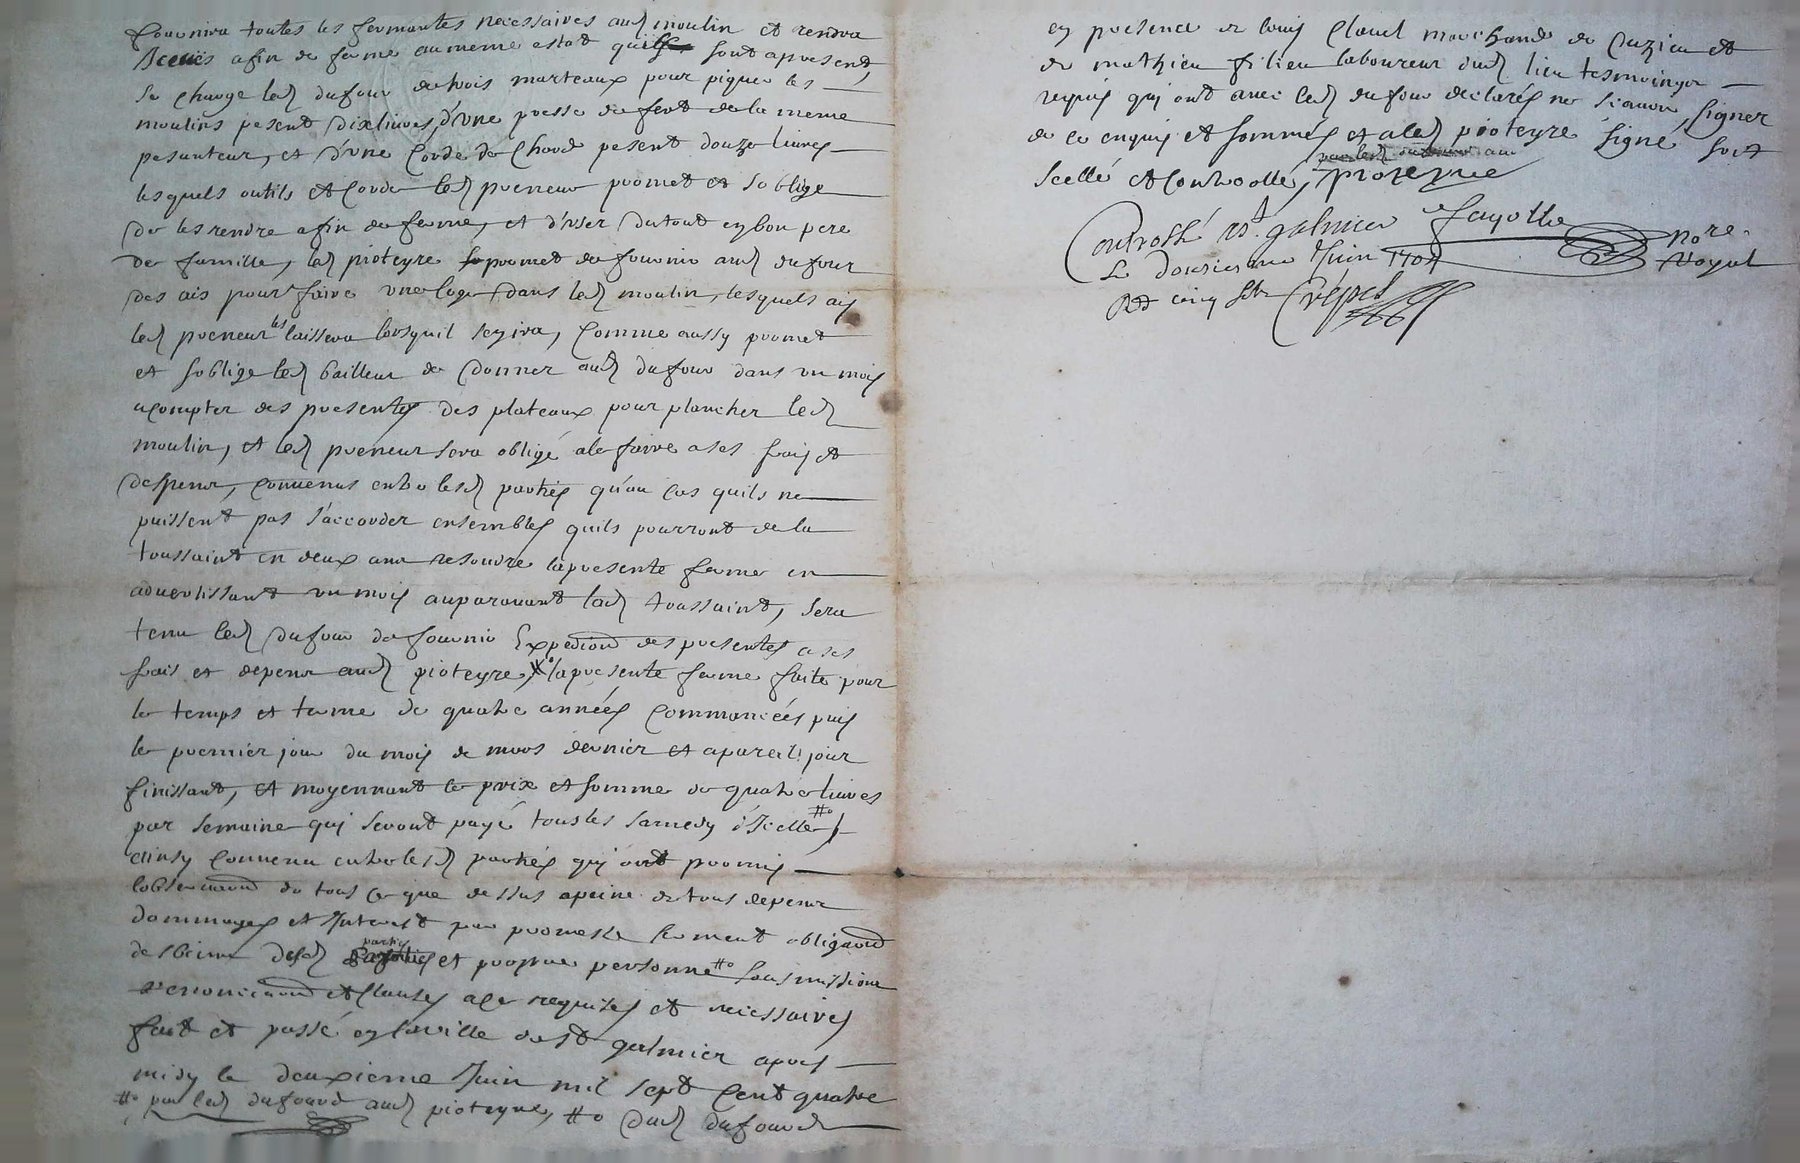 fournira toutes les fermantes necessaires aud moulin et rendra
Icelles afin de ferme au meme estat quils sont apresent,
se charge led dufour de trois marteaux pour piquer les
moulins pesent dix livres, d'vne presse de fert de la meme
pesanteur, et d'vne Corde de Chanvre pesent douze livres
lesquels outils et Corde led preneur promet et soblige
de les rendre afin de ferme, et d'vser du tout en bon pere
de famille, led pioteyre promet de fournir aud dufour
des ais pour faire vne loge dans led moulin, lesquels ais
led preneur les laissera lorsquil sen ira, Comme aussy promet
et soblige led bailleur de donner aud dufour dans un mois
a Compter des presentes des plateaux pour plancher led
moulin, et led preneur sera obligé a le faire a ses frais et
despens, Convenus entre lesd parties qu'au Cas quils ne
puissent pas s'accorder ensembles quils pourront de la
toussaint en deux ans resoudre la presente ferme en
advertissant un mois auparavant lad toussaint, sera
tenu led dufour de fournir Expediond des presentes a ses
frais et depens aud pioteyre, la presente ferme faite pour
le temps et terme de quatre années Commancées puis
le premier jour du mois de mars dernier et a pareil jour
finissant, et moyennant le prix et somme de quatre livres
par semaine qui seront payé tous les samedy d'Icelle #o
ainsy Convenu entre lesd parties qui ont promis
lobservaond de tous Ce que dessus a peine de tous depens
dommages et Interest par promesse serment obligaond
de biens desd parties et propre personne #o sousmissions
renonciaond et Clauses a ce requises et necessaires
fait et passé en la ville de st galmier apres
midy le deuxieme Juin mil sept Cent quatre
#o par led dufourd aud pioteyre, #o dud dufourd
en presence de louis Claud marchand de Cuzieu et
de mathieu filieu laboureur dud lieu tesmoings
requis qui ont avec led dufour declarés ne scavoir signer
de ce enquis et sommés et a led pioteyre signé soit
scellé et Controollé, pioteyre
Controllé a st galmier fayolle
Le douzieme Juin 1704 nore Royal
Rd cinq sols Crepet